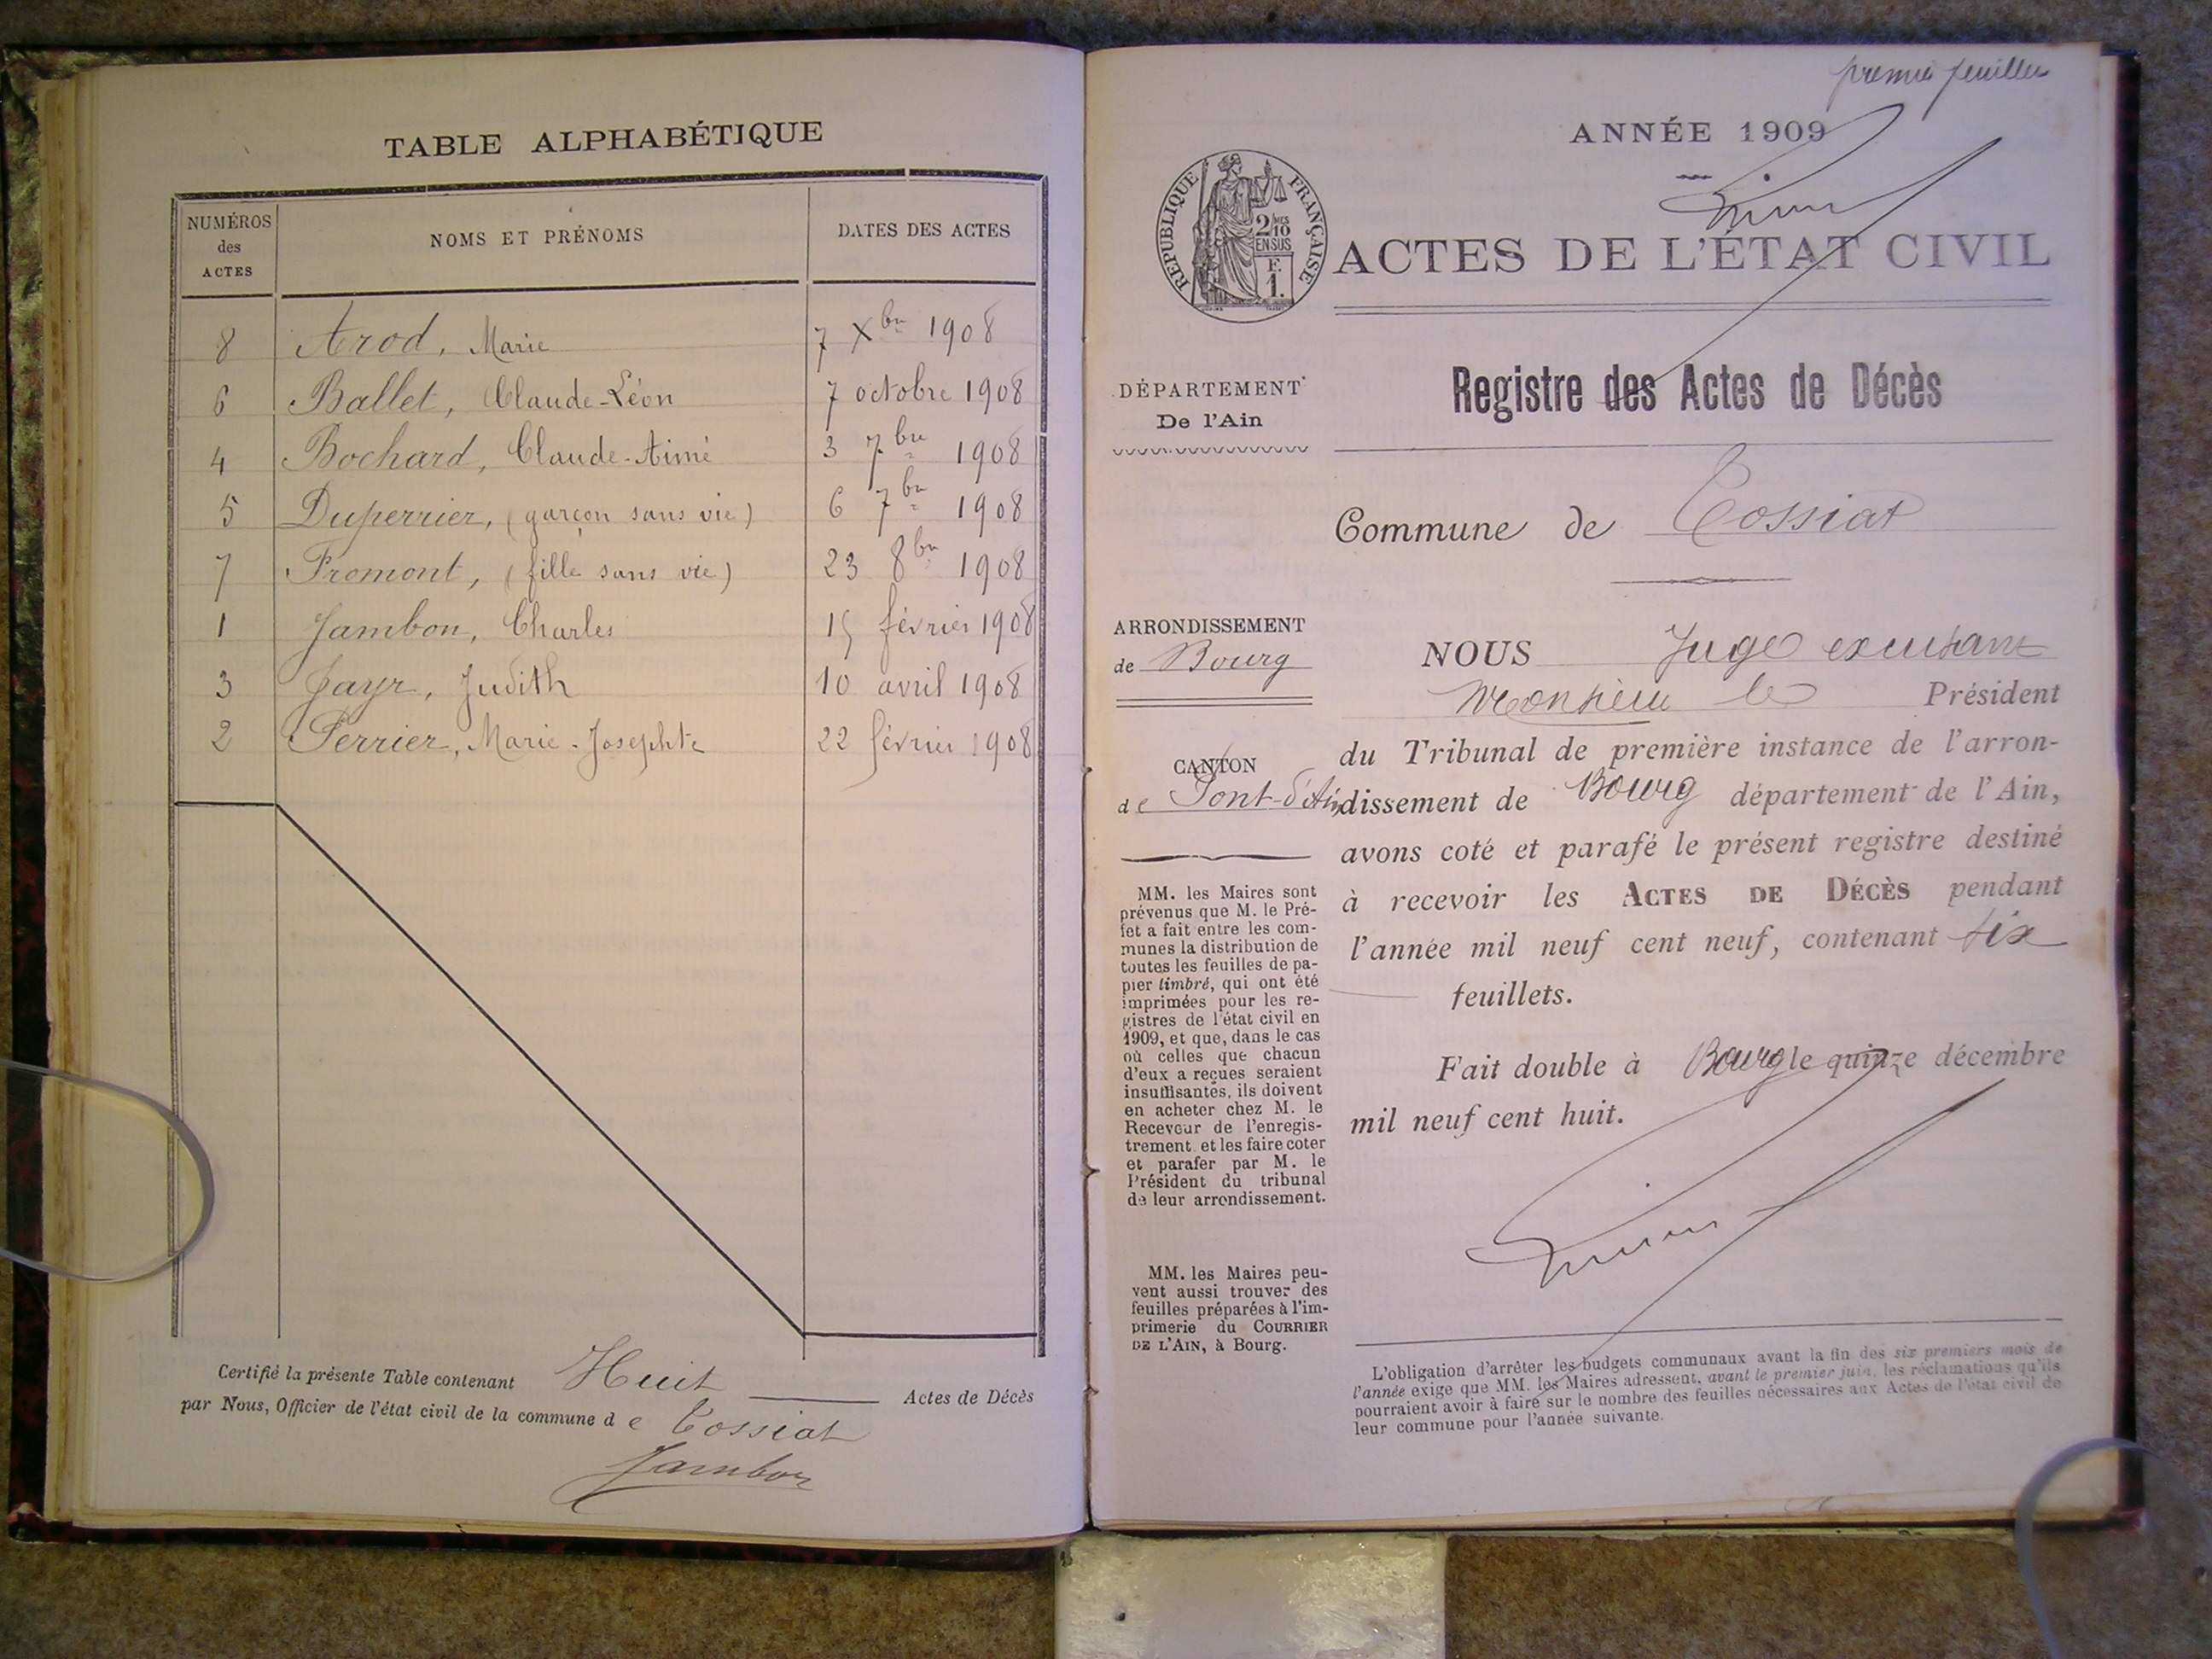 TABLE ALPHABÉTIQUE
NUMÉROS
des
ACTES
NOMS ET PRÉNOMS
DATES DES ACTES
8 Arod, Marie 7 Xbre 1908
6 Ballet, Claude-Léon 7 octobre 1908
4 Bochard, Claude-Aimé 3 7bre 1908
5 Duperrier, (garçon sans vie) 6 7bre 1908
7 Fromont, (fille sans vie) 23 8bre 1908
1 Jambon, Charles 15 février 1908
3 Jayr, Judith 10 avril 1908
2 Perrier, Marie-Josephte 22 février 1908
Certifié la présente Table contenant Huit Actes de Décès
par Nous, Officier de l'état civil de la commune de Tossiat
Jambon
premier feuillet
ANNÉE 1909
RÉPUBLIQUE FRANÇAISE
2/10 MES
EN SUS
F.
1.
ACTES DE L'ÉTAT CIVIL
DÉPARTEMENT
De l'Ain
Registre des Actes de Décès
Commune de Tossiat
ARRONDISSEMENT
de Bourg
CANTON
de Pont-d'Ain
MM. les Maires sont
prévenus que M. le Pré-
fet a fait entre les com-
munes la distribution de
toutes les feuilles de pa-
pier timbré, qui ont été
imprimées pour les re-
gistres de l'état civil en
1909, et que, dans le cas
où celles que chacun
d'eux a reçues seraient
insuffisantes, ils doivent
en acheter chez M. le
Receveur de l'enregis-
trement et les faire coter
et parafer par M. le
Président du tribunal
de leur arrondissement.
MM. les Maires peu-
vent aussi trouver des
feuilles préparées à l'im-
primerie du COURRIER
DE L'AIN, à Bourg.
NOUS Juge excusant
Monsieur le Président
du Tribunal de première instance de l'arron-
dissement de Bourg département de l'Ain,
avons coté et parafé le présent registre destiné
à recevoir les ACTES DE DÉCÈS pendant
l'année mil neuf cent neuf, contenant six
feuillets.
Fait double à Bourg le quinze décembre
mil neuf cent huit.
L'obligation d'arrêter les budgets communaux avant la fin des six premiers mois de
l'année exige que MM. les Maires adressent, avant le premier juin, les réclamations qu'ils
pourraient avoir à faire sur le nombre des feuilles nécessaires aux Actes de l'état civil de
leur commune pour l'année suivante.